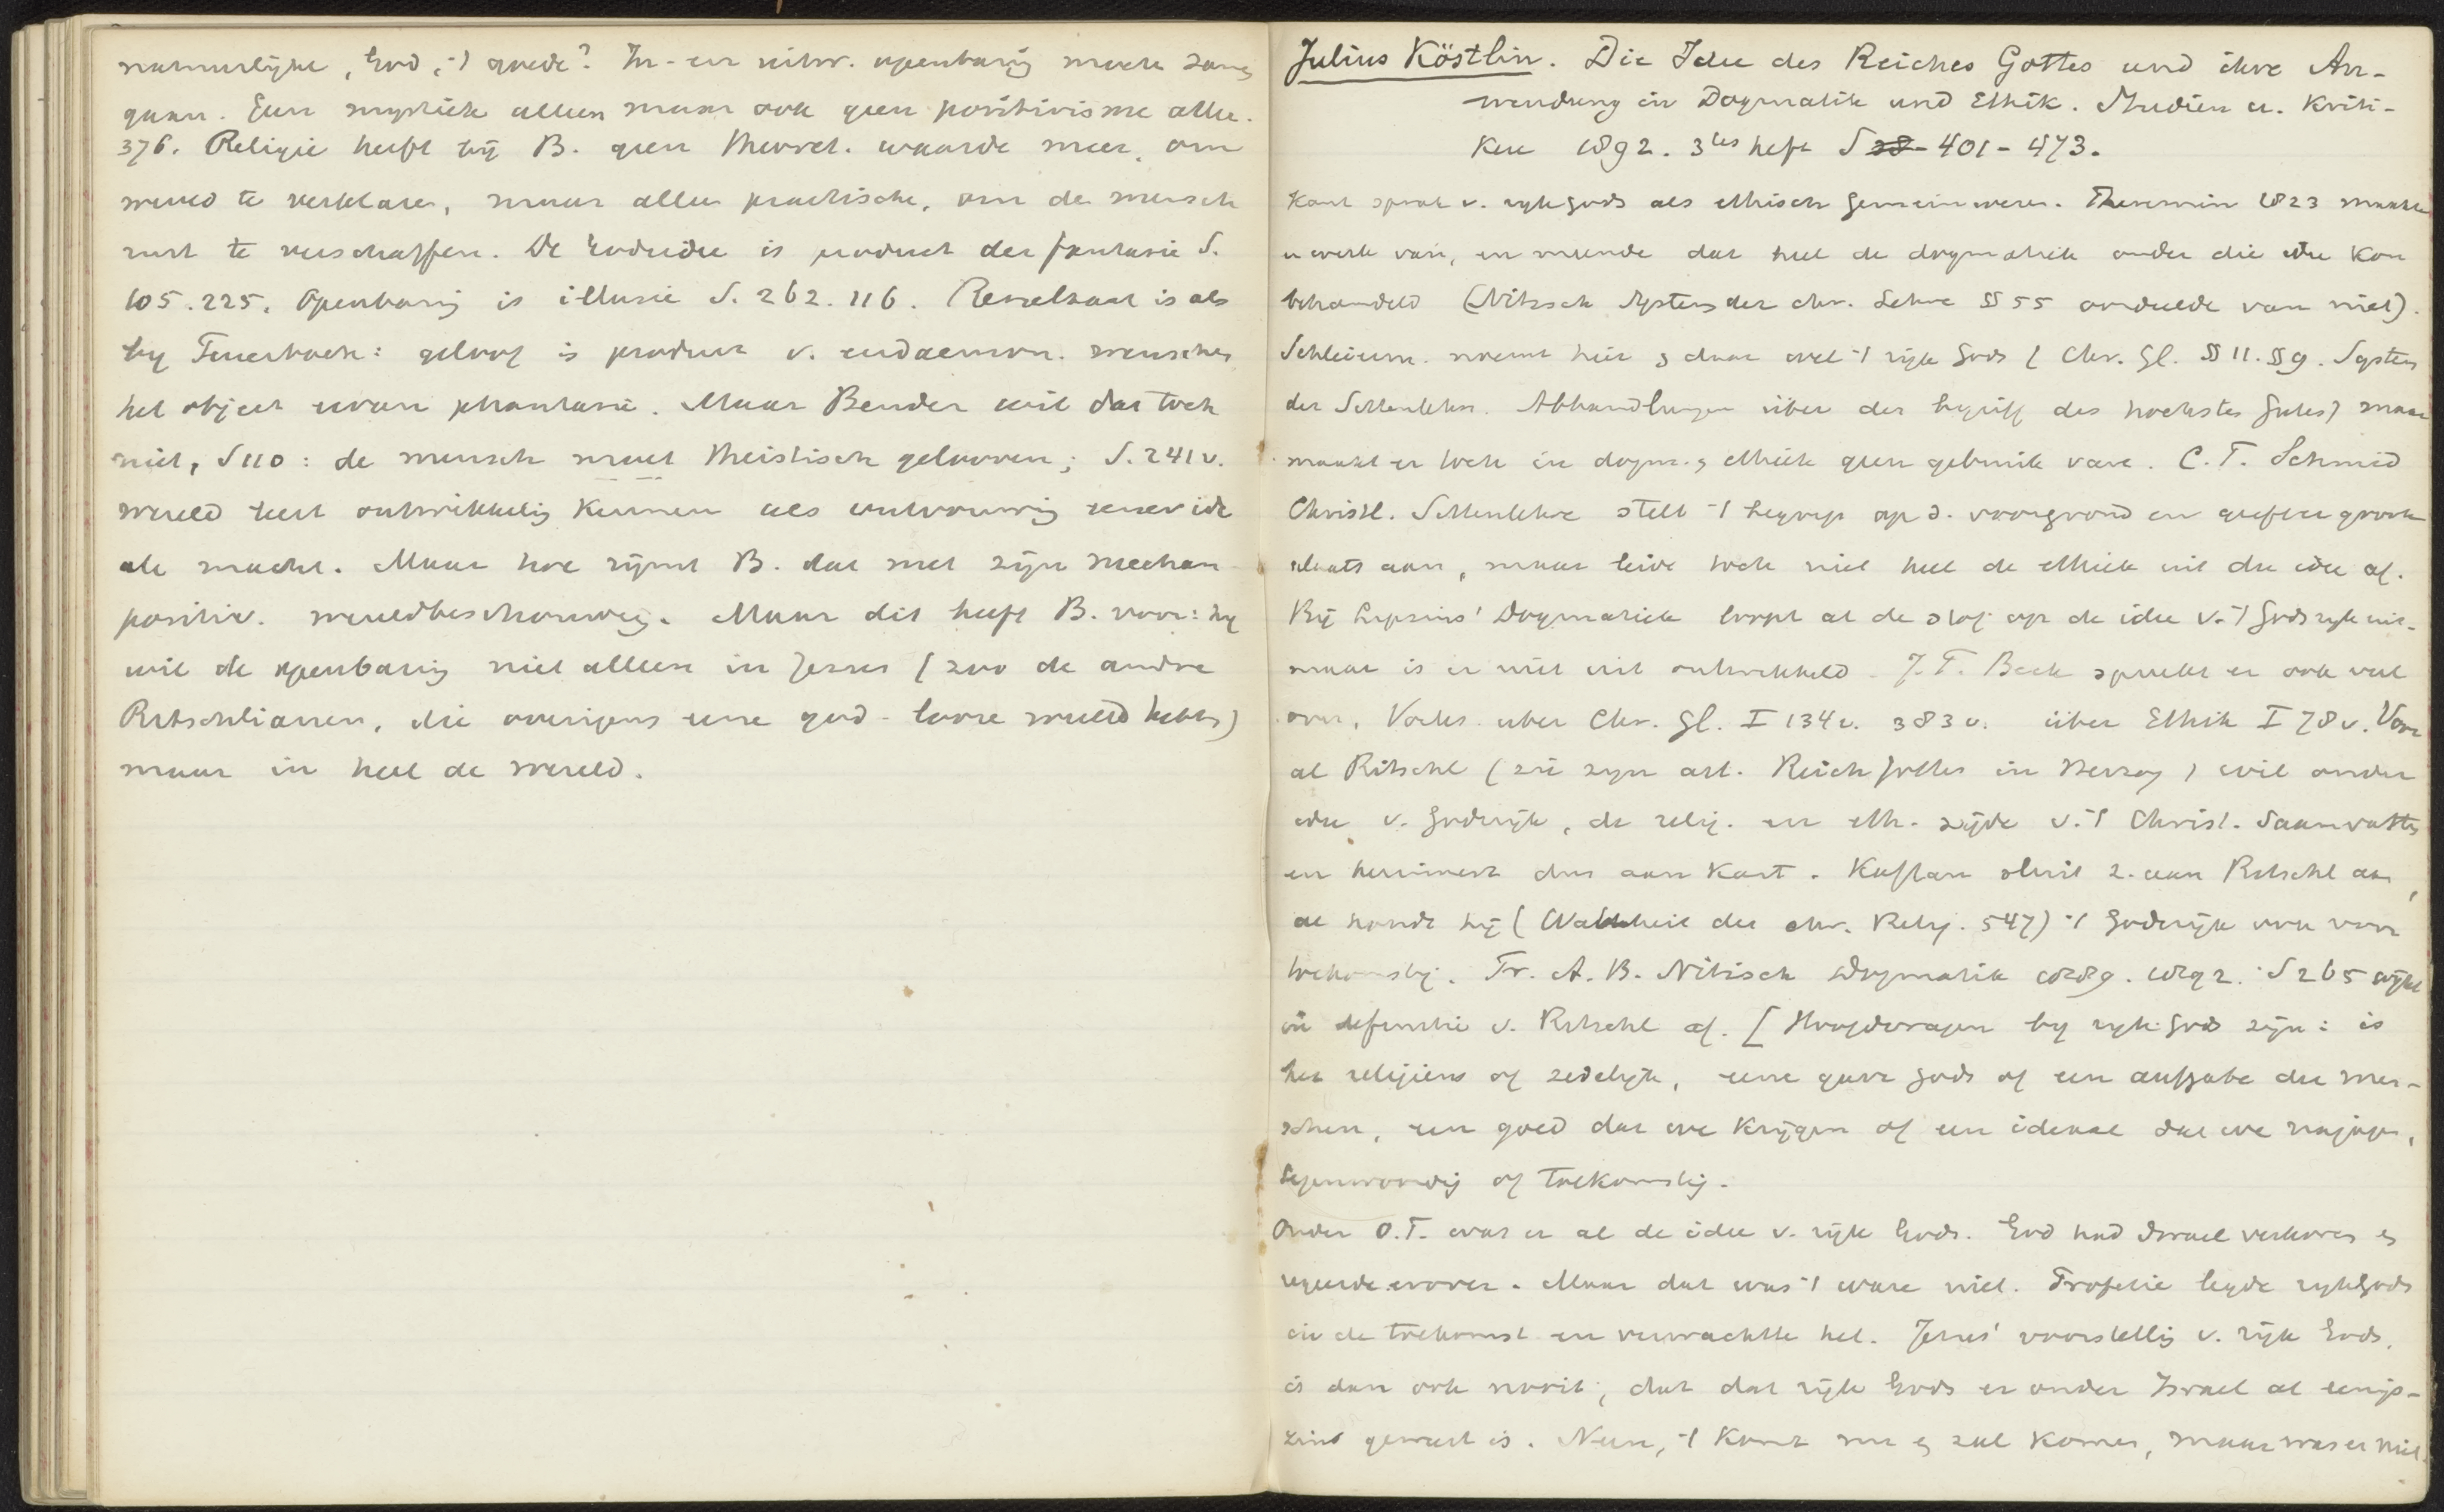 natuurlijke, God, 't goede? In- en uitw. openbaring moeten samen
gaan. Geen mystiek alleen maar ook geen positivisme alleen.
376. Religie heeft bij B. geen theoret. waarde meer, om
wereld te verklaren, maar alleen practische, om de mensch
rust te verschaffen. De Godsidee is product der fantasie S.
105. 225. Openbaring is illusie S. 262. 116. Resultaat is als
by Feuerbach: geloof is product v. eudaemon. wenschen
het object ervan phantasie. Maar Bender wil dat toch
niet, S 110: de mensch moet theistisch gelooven; S. 241 v.
wereld leert ontwikkeling kennen als ontvouwing eener ide
ale macht. Maar hoe rijmt B. dat met zijn mechan
positiv. wereldbeschouwing. Maar dit heeft B. voor: hij
wil de openbaring niet alleen in Jezus (zoo de andre
Ritschlianen, die overigens eene god-looze wereld hebben)
maar in heel de wereld.
Julius Köstlin. Die Idee des Reiches Gottes und ihre An-
wendung in Dogmatik und Ethik. Studien u. Kriti-
ken 1892. 3tes heft S 401-473.
Kant sprak v. rijk Gods als ethisch Gemeinwesen. Theremin 1823 maakte
er werk van, en meende dat heel de dogmatiek onder die idee kon
behandeld (Nitzsch System der chr. Lehre §§ 55 oordeelde van niet).
Schleierm. noemt hier en daar wel 't rijk Gods (Chr. Gl. §§ 11. §§ 9. System
der Sittenlehre. Abhandlungen über der begriff des hochstes Gutes) maar
maakt er toch in dogm. en ethiek geen gebruik van. C. F. Schmid
Christl. Sittenlehre stelt 't begrip op d. voorgrond en geeft er groote
plaats aan, maar leidt toch niet heel de ethiek uit die idee af.
Bij Lipsius' Dogmatiek loopt al de stof op de idee v. 't Godsrijk uit
maar is er niet uit ontwikkeld. J. T. Beck spreekt er ook veel
over, Vorles. uber Chr. Gl. I 134 v. 383 v. über Ethik I 78 v. Voor
al Ritschl (zie zijn art. Reich Gottes in Herzog) wil onder
idee v. Godsrijk, de relig. en eth. zijde v. 't Christ. saamvatten
en herinnert dus aan Kant. Kaftan sluit z. aan Ritschl aan,
al houdt hij (Wahrheit der chr. Relig. 547) 't Godsrijk ook voor
toekomstig. Fr. A. B. Nitzsch Dogmatik 1889. 1892. S 265 wijkt
in definitie v. Ritschl af. [Hoofdvragen by rijk Gods zijn: is
het religieus of zedelijk, eene gave Gods of een aufgabe der men-
schen, een goed dat we krijgen of een ideaal dat we najagen,
tegenwoordig of toekomstig.
Onder O.T. was er al de idee v. rijk Gods. God had Israel verkoren en
regeerde erover. Maar dat was 't ware niet. Profetie legde rijk Gods
in de toekomst en verwachtte het. Jezus' voorstelling v. rijk Gods,
is dan ook nooit, dat dat rijk Gods er onder Israel al eenigs-
zins geweest is. Neen, 't komt nu en zal komen, maar was er niet.